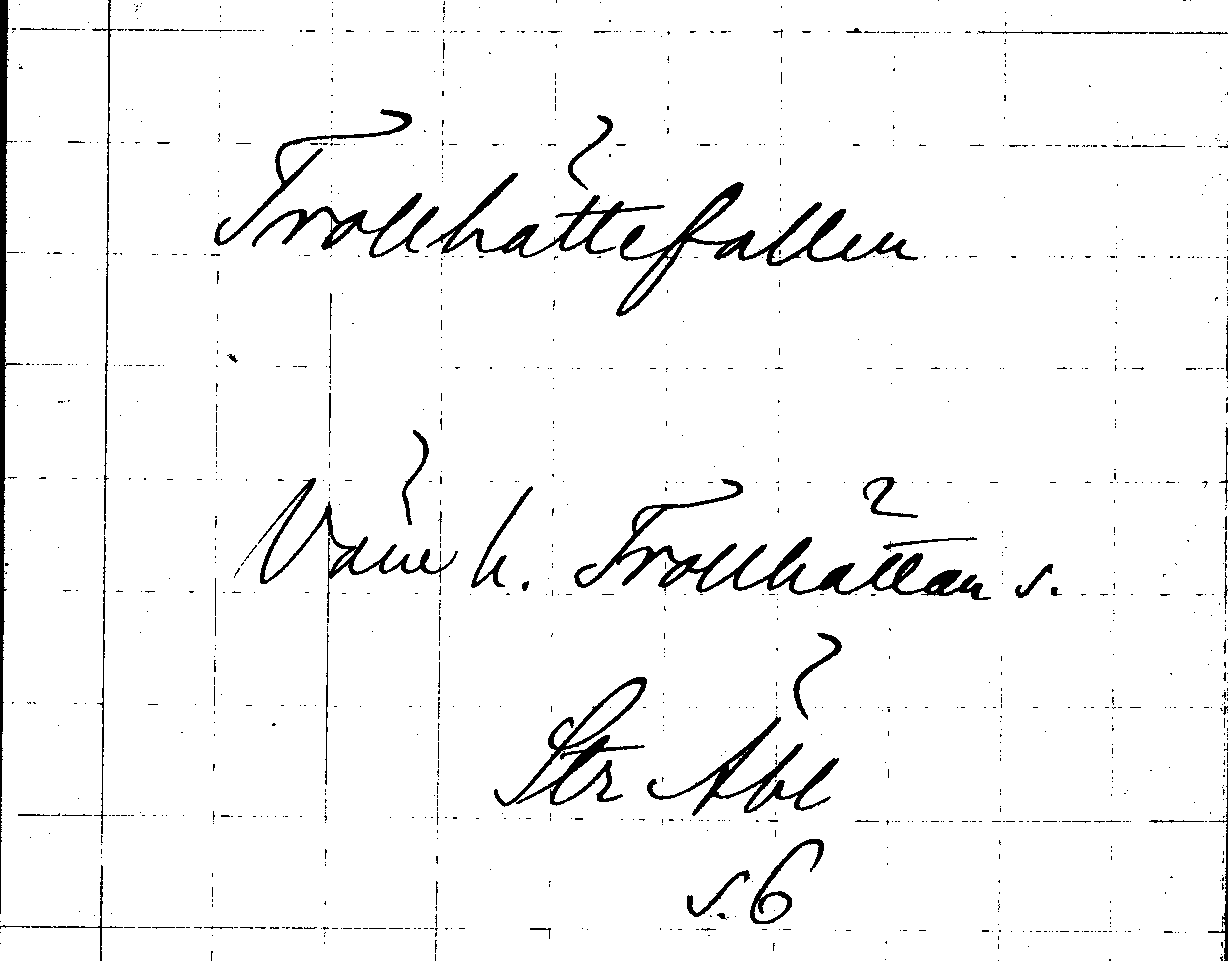 Trollhättefallen
Väne h. Trollhättan s.
Str Äbl
s. 6